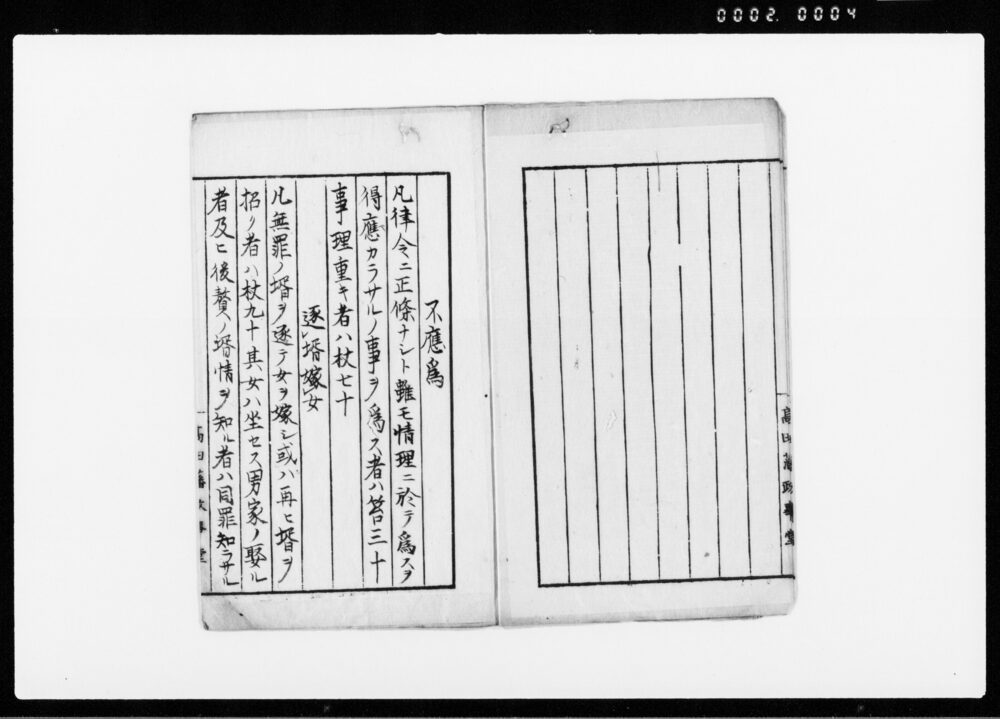 0002. 0004
高田藩政事堂
不應爲
凡律令ニ正條ナシト雖モ情理ニ於テ爲スヲ
得應カラサルノ事ヲ爲ス者ハ笞三十
事理重キ者ハ杖七十
逐壻嫁女
凡無罪ノ壻ヲ逐テ女ヲ嫁シ或ハ再ヒ壻ヲ
招ク者ハ杖九十其女ハ坐セス男家ノ娶ル
者及ヒ後贅ノ壻情ヲ知ル者ハ同罪知ラサル
高田藩政事堂